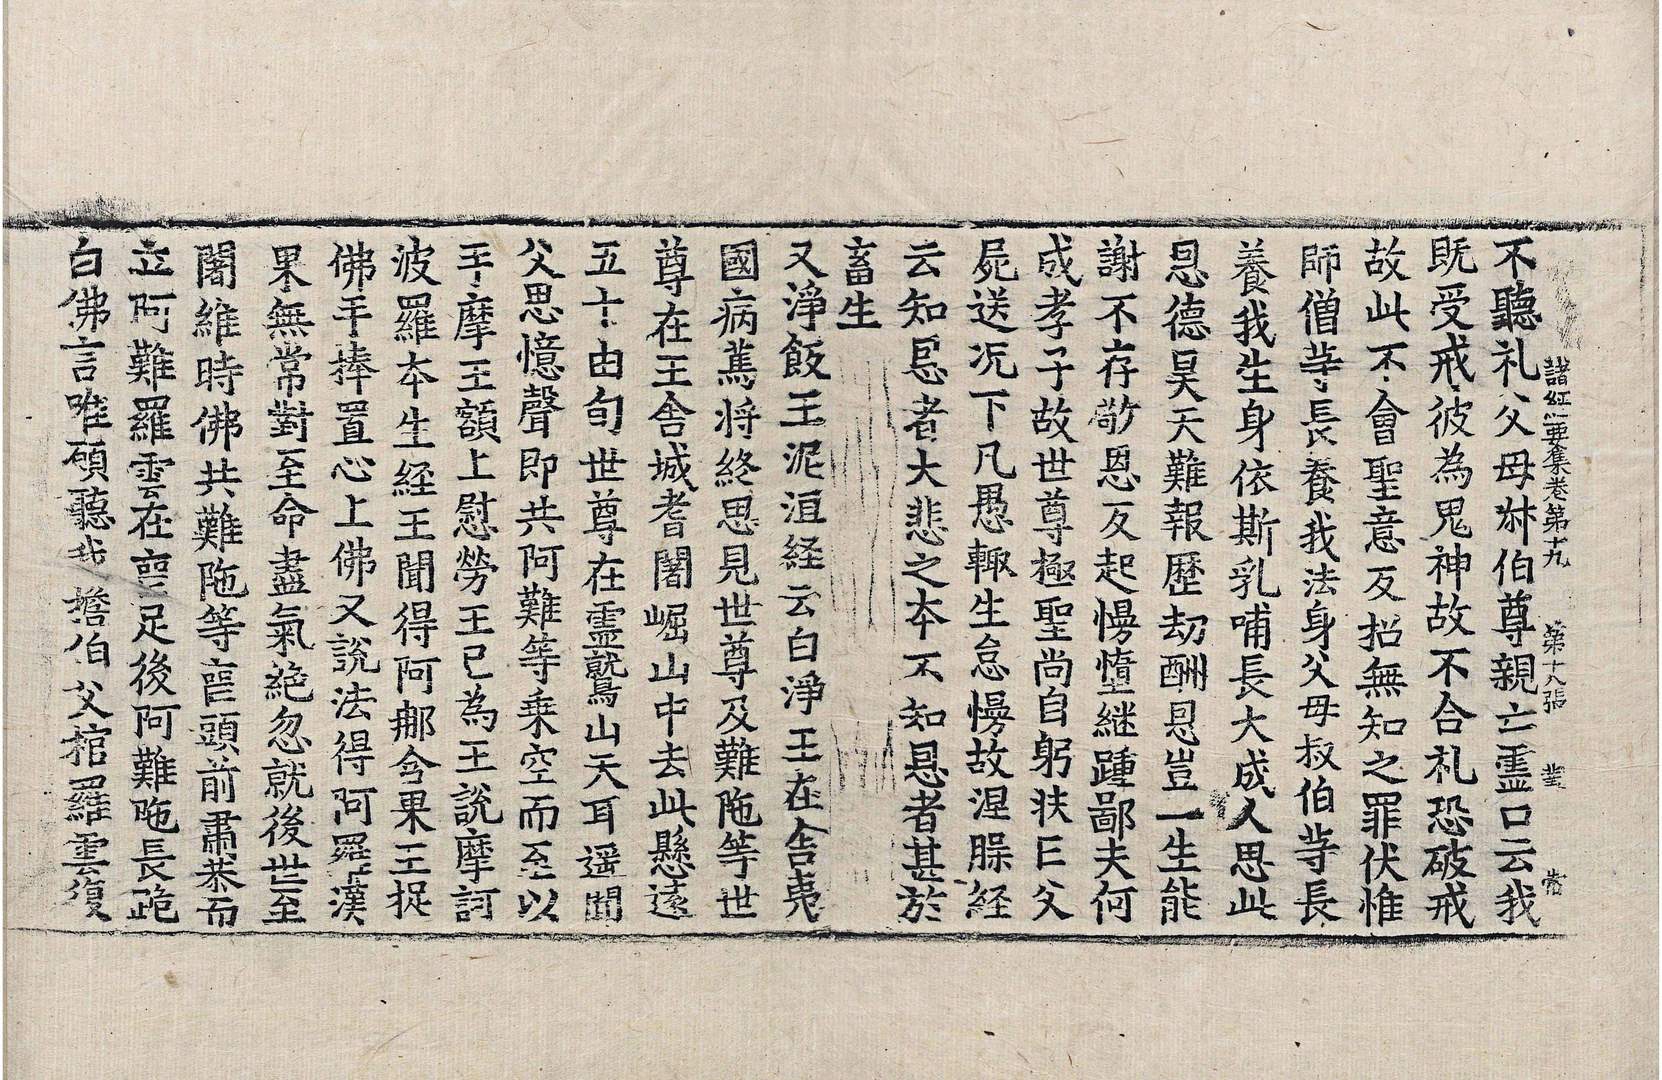 諸経要集卷第十九 第十八張
不聽礼父母叔伯尊親亡靈口云我
既受戒彼為鬼神故不合礼恐破戒
故此不會聖意反招無知之罪伏惟
師僧䒭長養我法身父母叔伯䒭長
養我生身依斯乳哺長大成人思此
恩德昊天難報歷劫酬恩豈一生能
謝不存敬恩反起慢憧継踵鄙夫何
成孝子故世尊極聖尚自躬扶亡父
屍送况下凡愚輙生怠慢故涅槃経
云知恩者大悲之夲不知恩者甚於
畜生
又淨飯王泥洹経云白淨王在舍夷
國病篤将終思見世尊及難陁等世
尊在王舍城耆闍崛山中去此懸遠
五十由旬世尊在靈鷲山天耳遥聞
父思憶聲即共阿難等乗空而至以
手摩王額上慰勞王已為王說摩訶
波羅夲生経王聞得阿那含果王捉
佛手捧置心上佛又說法得阿羅漢
果無常對至命盡氣絶忽就後世至
闍維時佛共難陁等䘮頭前肅恭而
立阿難羅雲在䘮足後阿難陁長跪
白佛言唯願聽我擔伯父棺羅雲復